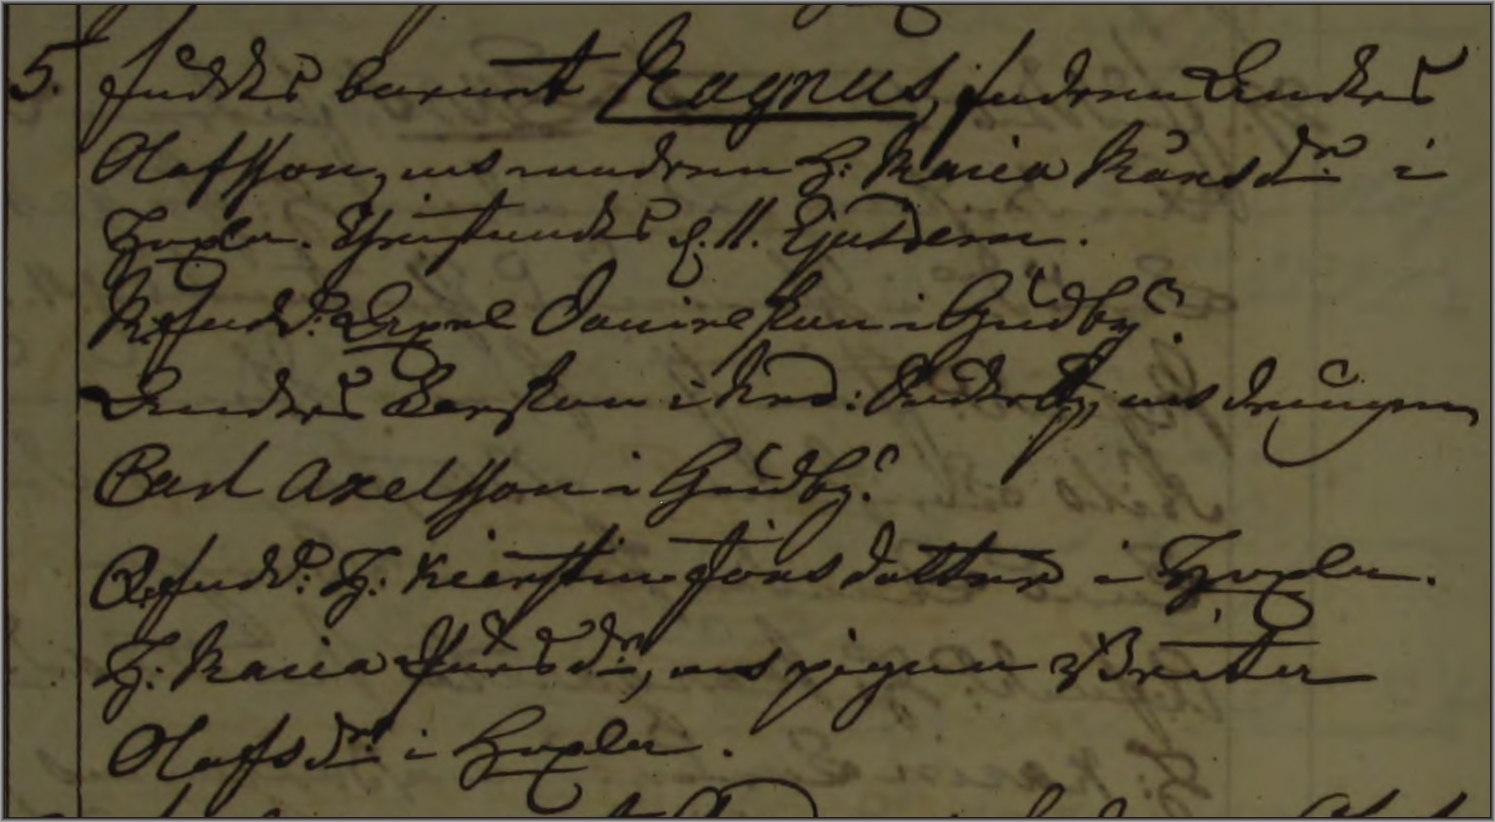 5. föddes barnet Magnus, fadren Anders
Olafsson, och modren H: Maria Månsdr i
Hoxla. Christnades d. 11. Ejusdem.
M.fadd: Axel Danielsson i Gudby.
Anders Larsson i och drängen
Carl Axelsson i Gudby.
Q.fadd: H: Kierstin Jons dotter i Hoxla.
H: Maria Jönsdr, och pigan Brita
Olafsdr i Hoxla.